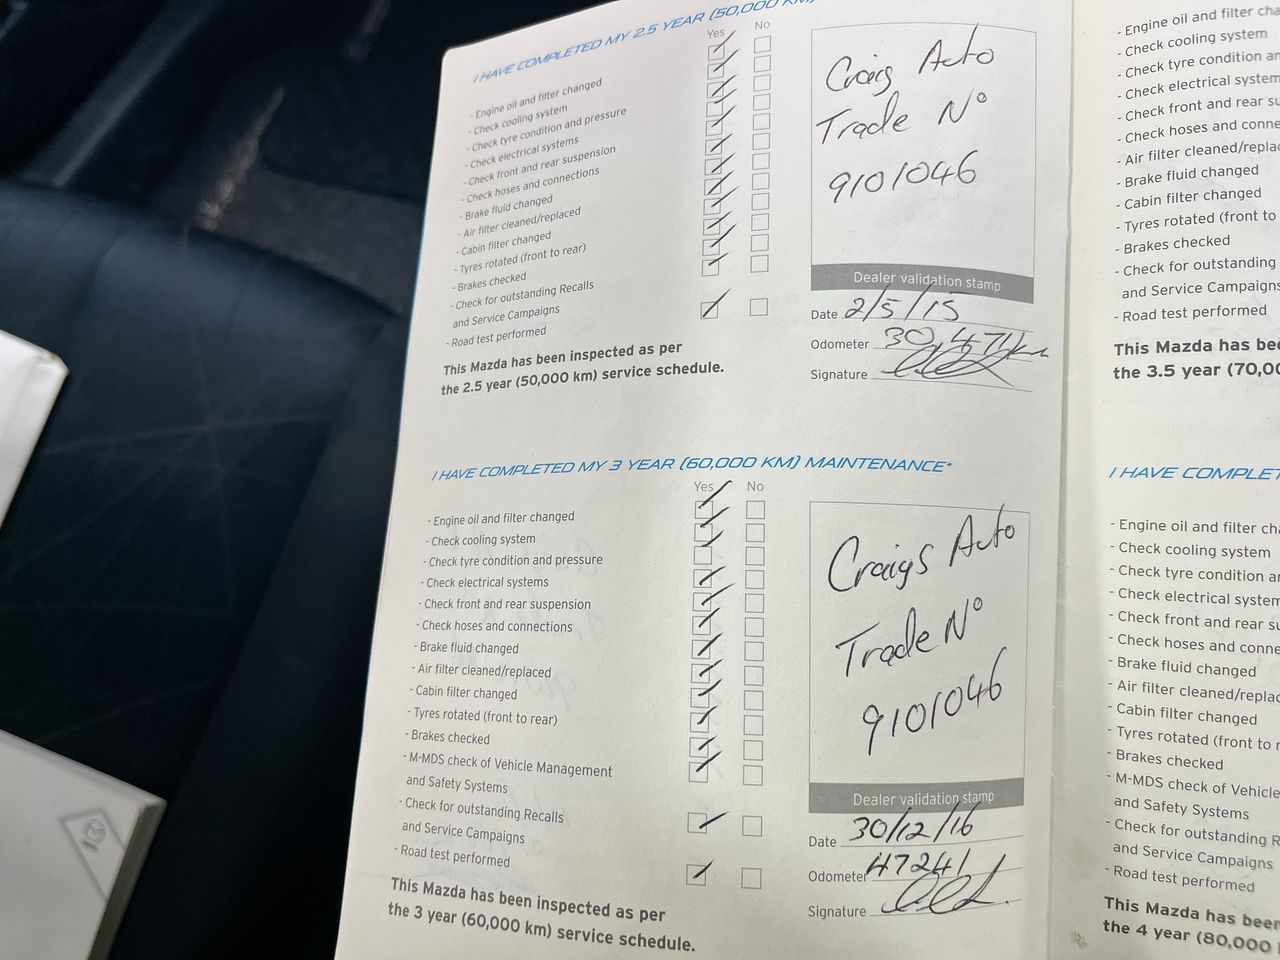 I HAVE COMPLETED MY 2.5 YEAR (50,000 KM)
Yes No
- Engine oil and filter changed
- Check cooling system
- Check tyre condition and pressure
- Check electrical systems
- Check front and rear suspension
- Check hoses and connections
- Brake fluid changed
- Air filter cleaned/replaced
- Cabin filter changed
- Tyres rotated (front to rear)
- Brakes checked
- Check for outstanding Recalls
and Service Campaigns
- Road test performed
This Mazda has been inspected as per
the 2.5 year (50,000 km) service schedule.
Craigs Auto
Trade No
9101046
Dealer validation stamp
Date 2/5/15
Odometer 30,471km
Signature
I HAVE COMPLETED MY 3 YEAR (60,000 KM) MAINTENANCE*
Yes No
- Engine oil and filter changed
- Check cooling system
- Check tyre condition and pressure
- Check electrical systems
- Check front and rear suspension
- Check hoses and connections
- Brake fluid changed
- Air filter cleaned/replaced
- Cabin filter changed
- Tyres rotated (front to rear)
- Brakes checked
- M-MDS check of Vehicle Management
and Safety Systems
- Check for outstanding Recalls
and Service Campaigns
- Road test performed
This Mazda has been inspected as per
the 3 year (60,000 km) service schedule.
Craigs Auto
Trade No
9101046
Dealer validation stamp
Date 30/12/16
Odometer 47241
Signature
- Engine oil and filter cha
- Check cooling system
- Check tyre condition an
- Check electrical system
- Check front and rear su
- Check hoses and conne
- Air filter cleaned/replac
- Brake fluid changed
- Cabin filter changed
- Tyres rotated (front to
- Brakes checked
- Check for outstanding
and Service Campaigns
- Road test performed
This Mazda has be
the 3.5 year (70,00
I HAVE COMPLET
- Engine oil and filter ch
- Check cooling system
- Check tyre condition a
- Check electrical system
- Check front and rear su
- Check hoses and conne
- Brake fluid changed
- Air filter cleaned/replac
- Cabin filter changed
- Tyres rotated (front to r
- Brakes checked
- M-MDS check of Vehicle
and Safety Systems
- Check for outstanding R
and Service Campaigns
- Road test performed
This Mazda has been
the 4 year (80,000